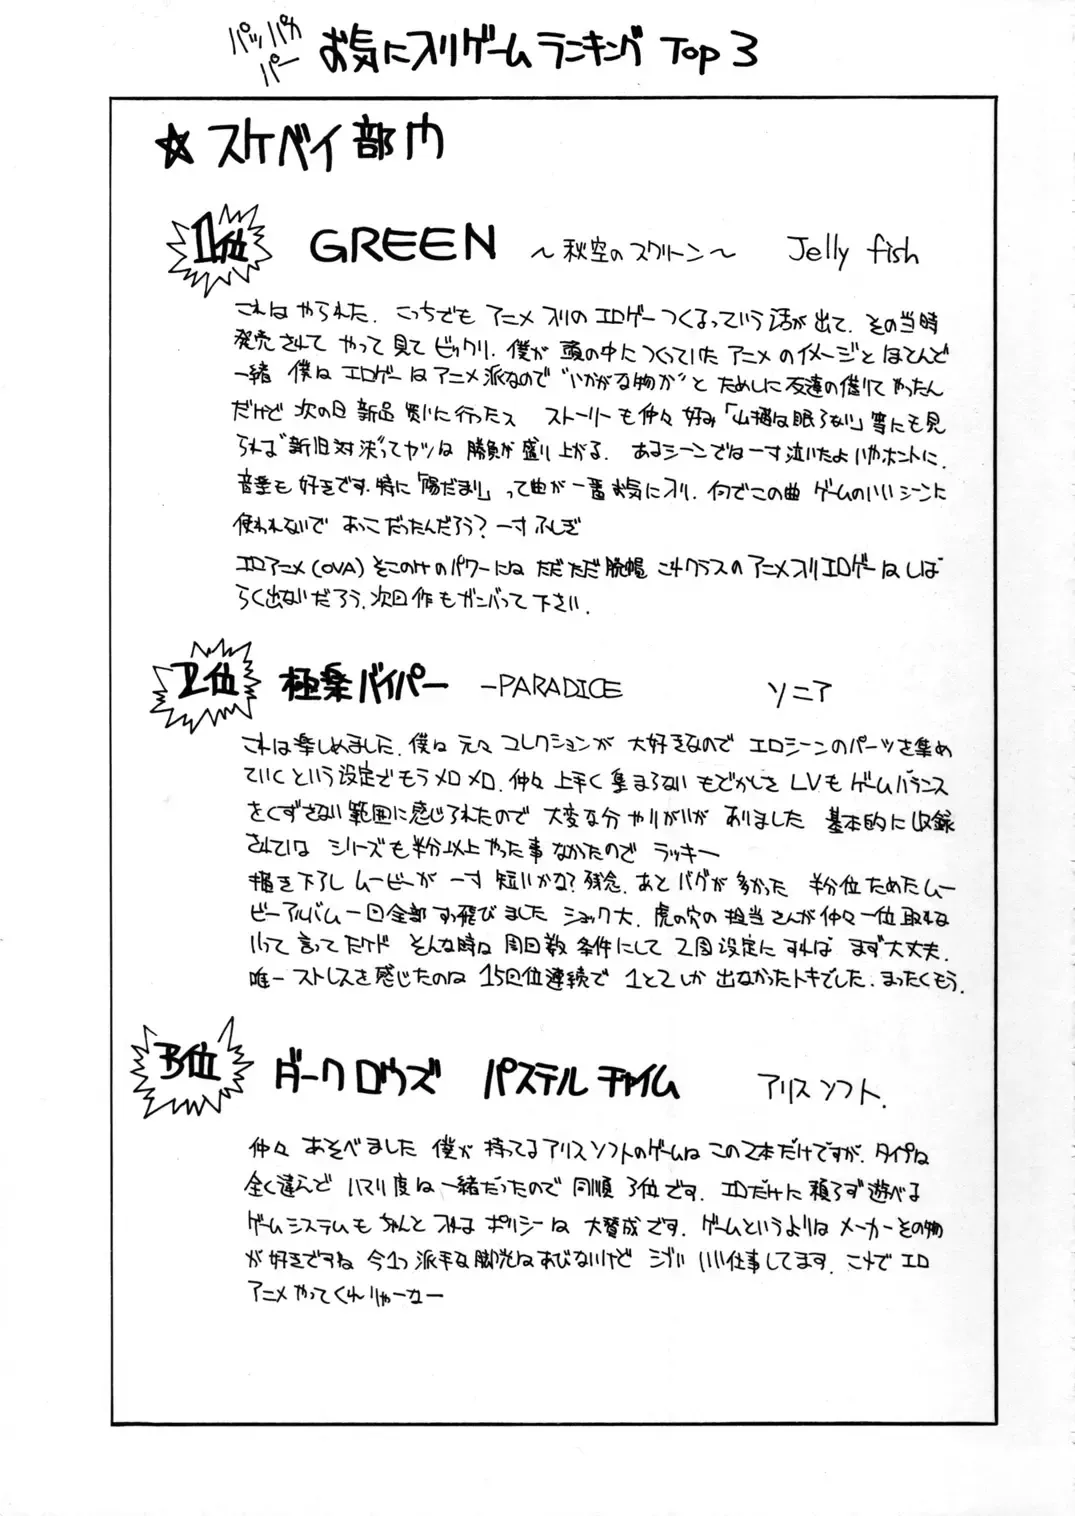 パッパカ
パー
お気に入りゲームランキング Top 3
☆ スケベイ部門
1位 GREEN 〜秋空のスクリーン〜 Jelly fish
これはやられた。こっちでも アニメ入りのエロゲーつくるっていう話が出て、その当時
発売されて やって見てビックリ。僕が頭の中につくっていたアニメのイメージとほとんど
一緒 僕はエロゲーはアニメ派なので"いかがな物か"と ためしに友達の借りてやったん
だけど 次の日新品買いに行ったス ストーリーも仲々好み「山猫は眠らない」等にも見
られば"新旧対決"ってヤツは 勝負が盛り上がる。 あるシーンでは一寸泣いたよいやホントに。
音楽も好きです。特に「陽だまり」って曲が一番お気に入り。何でこの曲 ゲームのいいシーンに
使われないで おっこだったんだろう?一寸ふしぎ
エロアニメ(OVA)そこのけのパワーには ただただ脱帽 こんクラスのアニメ入りエロゲーはしば
らく出ないだろう。次回作もガンバって下さい。
2位 極楽バイパー -PARADICE ソニア
これは楽しめました。僕は元々コレクションが大好きなので エロシーンのパーツを集め
ていくという設定でもうメロメロ。仲々上手く集まらないもどかしさLVもゲームバランス
をくずさない範囲に感じられたので 大変な分やりがいがありました 基本的に収録
されている シリーズも半分以上やった事なかったのでラッキー
描き下ろしムービーが一寸短いかな?残念。あとバグが多かった 半分位ためたムー
ビーアルバム一回全部すっ飛びました ショック大。虎の穴の担当さんが仲々一位取れな
いって言ってたけど そんな時は周回数条件にして2周設定にすれば まず大丈夫。
唯一ストレスを感じたのは 15回位連続で 1と2しか出なかったトキでした。まったくもう。
3位 ダークロウズ パステルチャイム アリスソフト。
仲々あそべました 僕が持ってるアリスソフトのゲームはこの2本だけですが、タイプは
全く違んど ハマリ度は一緒だったので同順3位です。エロだけに頼らず遊べる
ゲームシステムもちゃんと入れる ポリシーは大賛成です。ゲームというよりはメーカーその物
が好きですね 今1つ派手な脚光はあびないけど シブい いい仕事してます。これでエロ
アニメやってくれりゃーなー